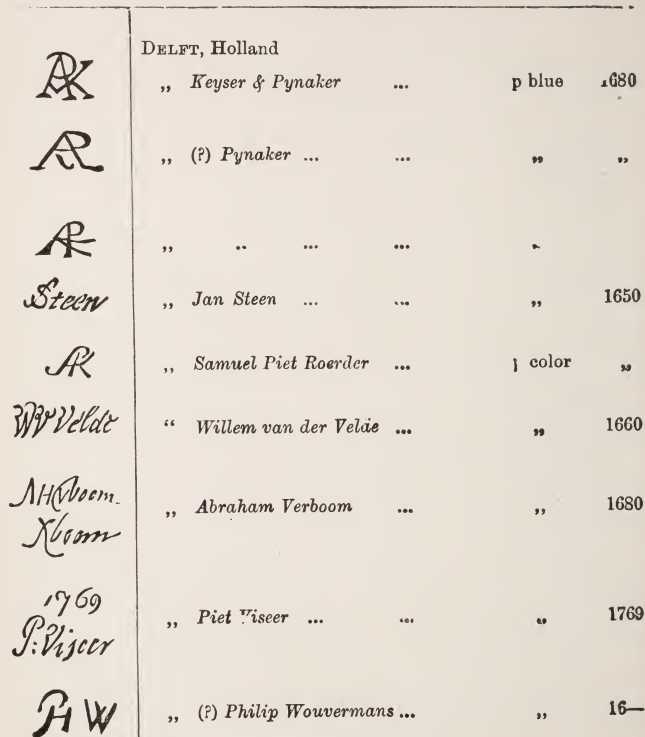 DELFT, Holland
„ Keyser & Pynaker ... p blue 1680
„ (?) Pynaker ... ... „ „
„ „ ... ...
Steen „ Jan Steen ... ... „ 1650
„ Samuel Piet Roerder ... color „
WVVeldt “ Willem van der Velde ... „ 1660
„ Abraham Verboom ... „ 1680
1769
P: Viseer „ Piet Viseer ... ... „ 1769
PHW „ (?) Philip Wouvermans ... „ 16—